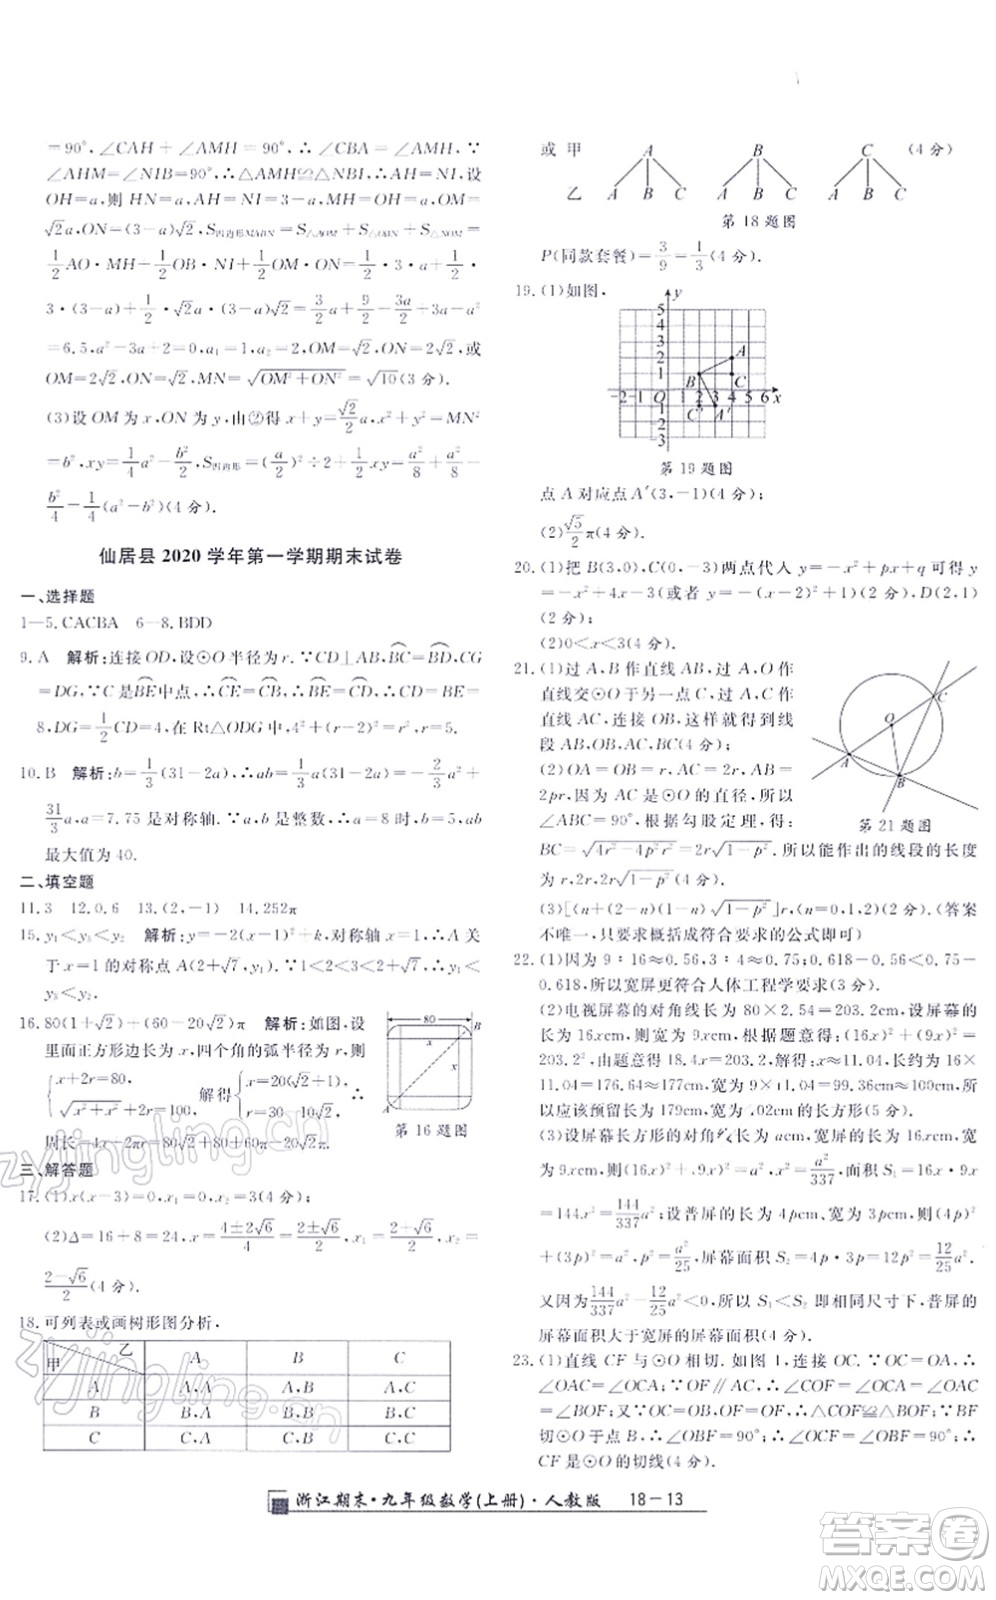 =90°,∠CAH+∠CAM=∠CAH+∠AMH,∵
∠AHM=∠NIB=90°,∴△AMH≌△NBI,∴AH=NI,设
OH=a,则 HN=a,AH=NI=3-a,MH=3,∴OM=
√2a,ON=(3-a)√2,S四边形MABN=S△AOM+S△NOB+S△NOM=
1/2AO·MH+1/2OB·NI+1/2OM·ON=1/2·3·a+1/2·
3·(3-a)+1/2·√2a·(3-a)√2=3/2a+9/2-3/2a+3a-a²
=6.5,a²-3a+2=0,a₁=1,a₂=2,OM=√2,ON=2√2,或
OM=2√2,ON=√2,MN=√(OM²+ON²)=√10(3 分).
(3)设 OM 为 x,ON 为 y,由②得 x+y=√2/2a,x²+y²=MN²
=b²,xy=1/4a²-b²/2,S四边形=(a/2)²÷2+1/2xy=a²/8+a²/8-
b²/4=1/4(a²-b²)(4 分).
仙居县 2020 学年第一学期期末试卷
一、选择题
1—5. CACBA 6—8. BDD
9. A 解析:连接 OD,设⊙O 半径为 r. ∵CD⊥AB,BC=BD,CG
=DG,∵C 是BE中点,∴CE=CB,∴BE=CD,∴CD=BE=
8,DG=1/2CD=4,在 Rt△ODG 中,4²+(r-2)²=r²,r=5.
10. B 解析:b=1/3(31-2a),∴ab=1/3a(31-2a)=-2/3a²+
31/3a,a=7.75 是对称轴.∵a,b 是整数,∴a=8,b=5,ab
最大值为 40.
二、填空题
11. 3 12. 0.6 13. (2,-1) 14. 252π
15. y₁<y₃<y₂ 解析:y=-2(x-1)²+k,对称轴 x=1,∴A 关
于 x=1 的对称点 A(2+√7,y₁),∵1<2<3<2+√7,∴
y₁<y₃<y₂.
16. 80(1+√2)+(60-20√2)π 解析:如图,设
里面正方形边长为 x,四个角的弧半径为 r,则
{x+2r=80, √(x²+x²)+2r=100, 解得{x=20+20√2, r=30-10√2,
周长=4x+2πr=80(1+√2)+(60-20√2)π.
80
B
x
x
A
第 16 题图
三、解答题
17. (1)x(x-3)=0,x₁=0,x₂=3(4 分);
(2)Δ=16+8=24,x=(4±2√6)/4=(2±√6)/2,x₁=(2+√6)/2,x₂=
(2-√6)/2(4 分).
18. 可列表或画树形图分析.
甲 乙 A B C
A A,A A,B A,C
B B,A B,B B,C
C C,A C,B C,C
或 甲 A B C (4 分)
乙 A B C A B C A B C
第 18 题图
P(同款套餐)=3/9=1/3(4 分).
19. (1)如图.
y
5
2
1
-2 -1 O 1 2 3 4 5 6 x
-1
-2
-3
A
B
C
C′
A′
第 19 题图
点 A 对应点 A′(3,-1)(4 分);
(2)√5/2π(4 分).
20. (1)把 B(3,0),C(0,-3)两点代入 y=-x²+px+q 可得 y=
-x²+4x-3(或者 y=-(x-2)²+1)(2 分),D(2,1)
(2 分);
(2)0<x<3(4 分).
21. (1)过 A,B 作直线 AB,过 A,O 作
直线交⊙O 于另一点 C,过 A,C 作
直线 AC,连接 OB,这样就得到线
段 AB,OB,AC,OA(4 分);
(2)OA=OB=r,根据题意,AB=
2pr,因为 AC 是⊙O 的直径,所以
∠ABC=90°,根据勾股定理,得:
BC=√(4r²-4p²r²)=2r√(1-p²). 所以能作出的线段的长度
为 r,2r,2r√(1-p²)(4 分).
O
C
A
B
第 21 题图
(3)[(n+(2-n)(1-n)√(1-p²)]r,(n=0,1,2)(2 分).(答案
不唯一,只要求概括成符合要求的公式即可)
22. (1)因为 9∶16≈0.56,3∶4=0.75,0.618-0.56<0.75-
0.618,所以宽屏更符合人体工程学要求(3 分).
(2)电视屏幕的对角线长为 80×2.54=203.2cm,设屏幕的
长为 16xcm,则宽为 9xcm,根据题意得:(16x)²+(9x)²=
203.2²,由题意可得 18.4x=203.2,解得:x=11.04,长为 16×
11.04=176.64≈177cm,宽为 9×11.04=99.36≈100cm,所
以应该预留长为 179cm,宽为102cm 的空间(5 分).
(3)设屏幕长方形的对角线为 acm,宽屏的长为 16xcm,
宽为 9xcm,则(16x)²+(9x)²=a²,x²=a²/337,S₁=16x·9x
=144x²=144/337a²;设普屏的长为 4pcm,宽为 3pcm,则(4p)²
+(3p)²=a²,p²=a²/25,屏幕面积 S₂=4p·3p=12p²=12/25a².
又因为144/337a²-12/25a²<0,所以 S₁<S₂ 即相同尺寸下,普屏的
屏幕面积大于宽屏的屏幕面积(4 分).
23. (1)直线 CF 与⊙O 相切. 如图 1,连接 OC. ∵OC=OA,∴
∠OAC=∠OCA;∵OF∥AC,∴∠COF=∠OCA,∠OAC
=∠BOF;又∵OC=OB,OF=OF,∴△COF≌△BOF;∵BF
切⊙O 于点 B,∴∠OBF=90°;∴∠OCF=∠OBF=90°;∴
CF 是⊙O 的切线(4 分).
浙江期末·九年级数学(上册)·人教版 18—13
zyjingling.cn
zyjingling.cn
答案卷
MXQE.COM